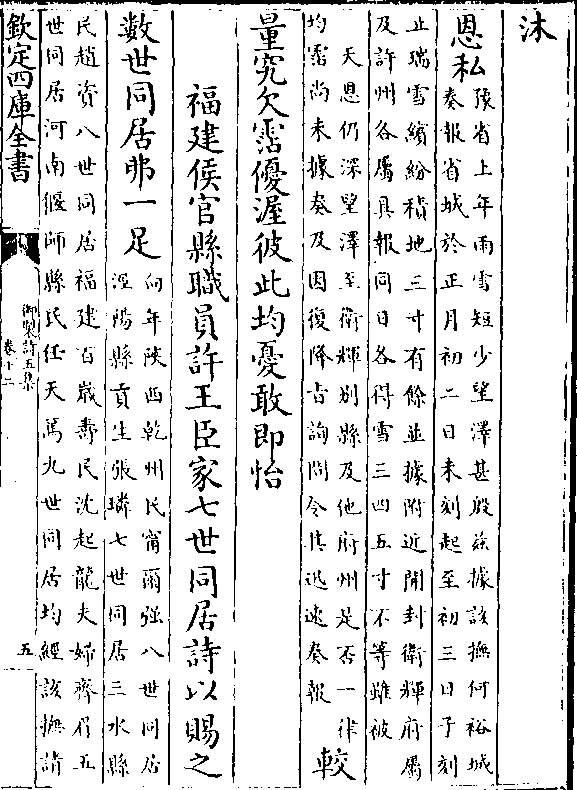 沐
恩私豫省上年雨雪短少望澤甚殷茲據該撫何裕城
奏報省城於正月初二日未刻起至初三日子刻
止瑞雪繽紛積地三寸有餘並據附近開封衛輝府屬
及許州各屬具報同日各得雪三四五寸不等雖被
天恩仍深望澤至衛輝別縣及他府州是否一律
均霑尚未據奏及因復降㫖詢問令其迅速奏報較
量究欠霑優渥彼此均憂敢即怡
福建侯官縣職員許王臣家七世同居詩以賜之
數世同居弗一足向年陝西乾州民甯爾强八世同居
涇陽縣貢生張璘七世同居三水縣
民趙資八世同居福建百嵗壽民沈起龍夫婦齊眉五
世同居河南偃師縣民任天篤九世同居均經該撫請
欽定四庫全書
御製詩五集
卷十二
五